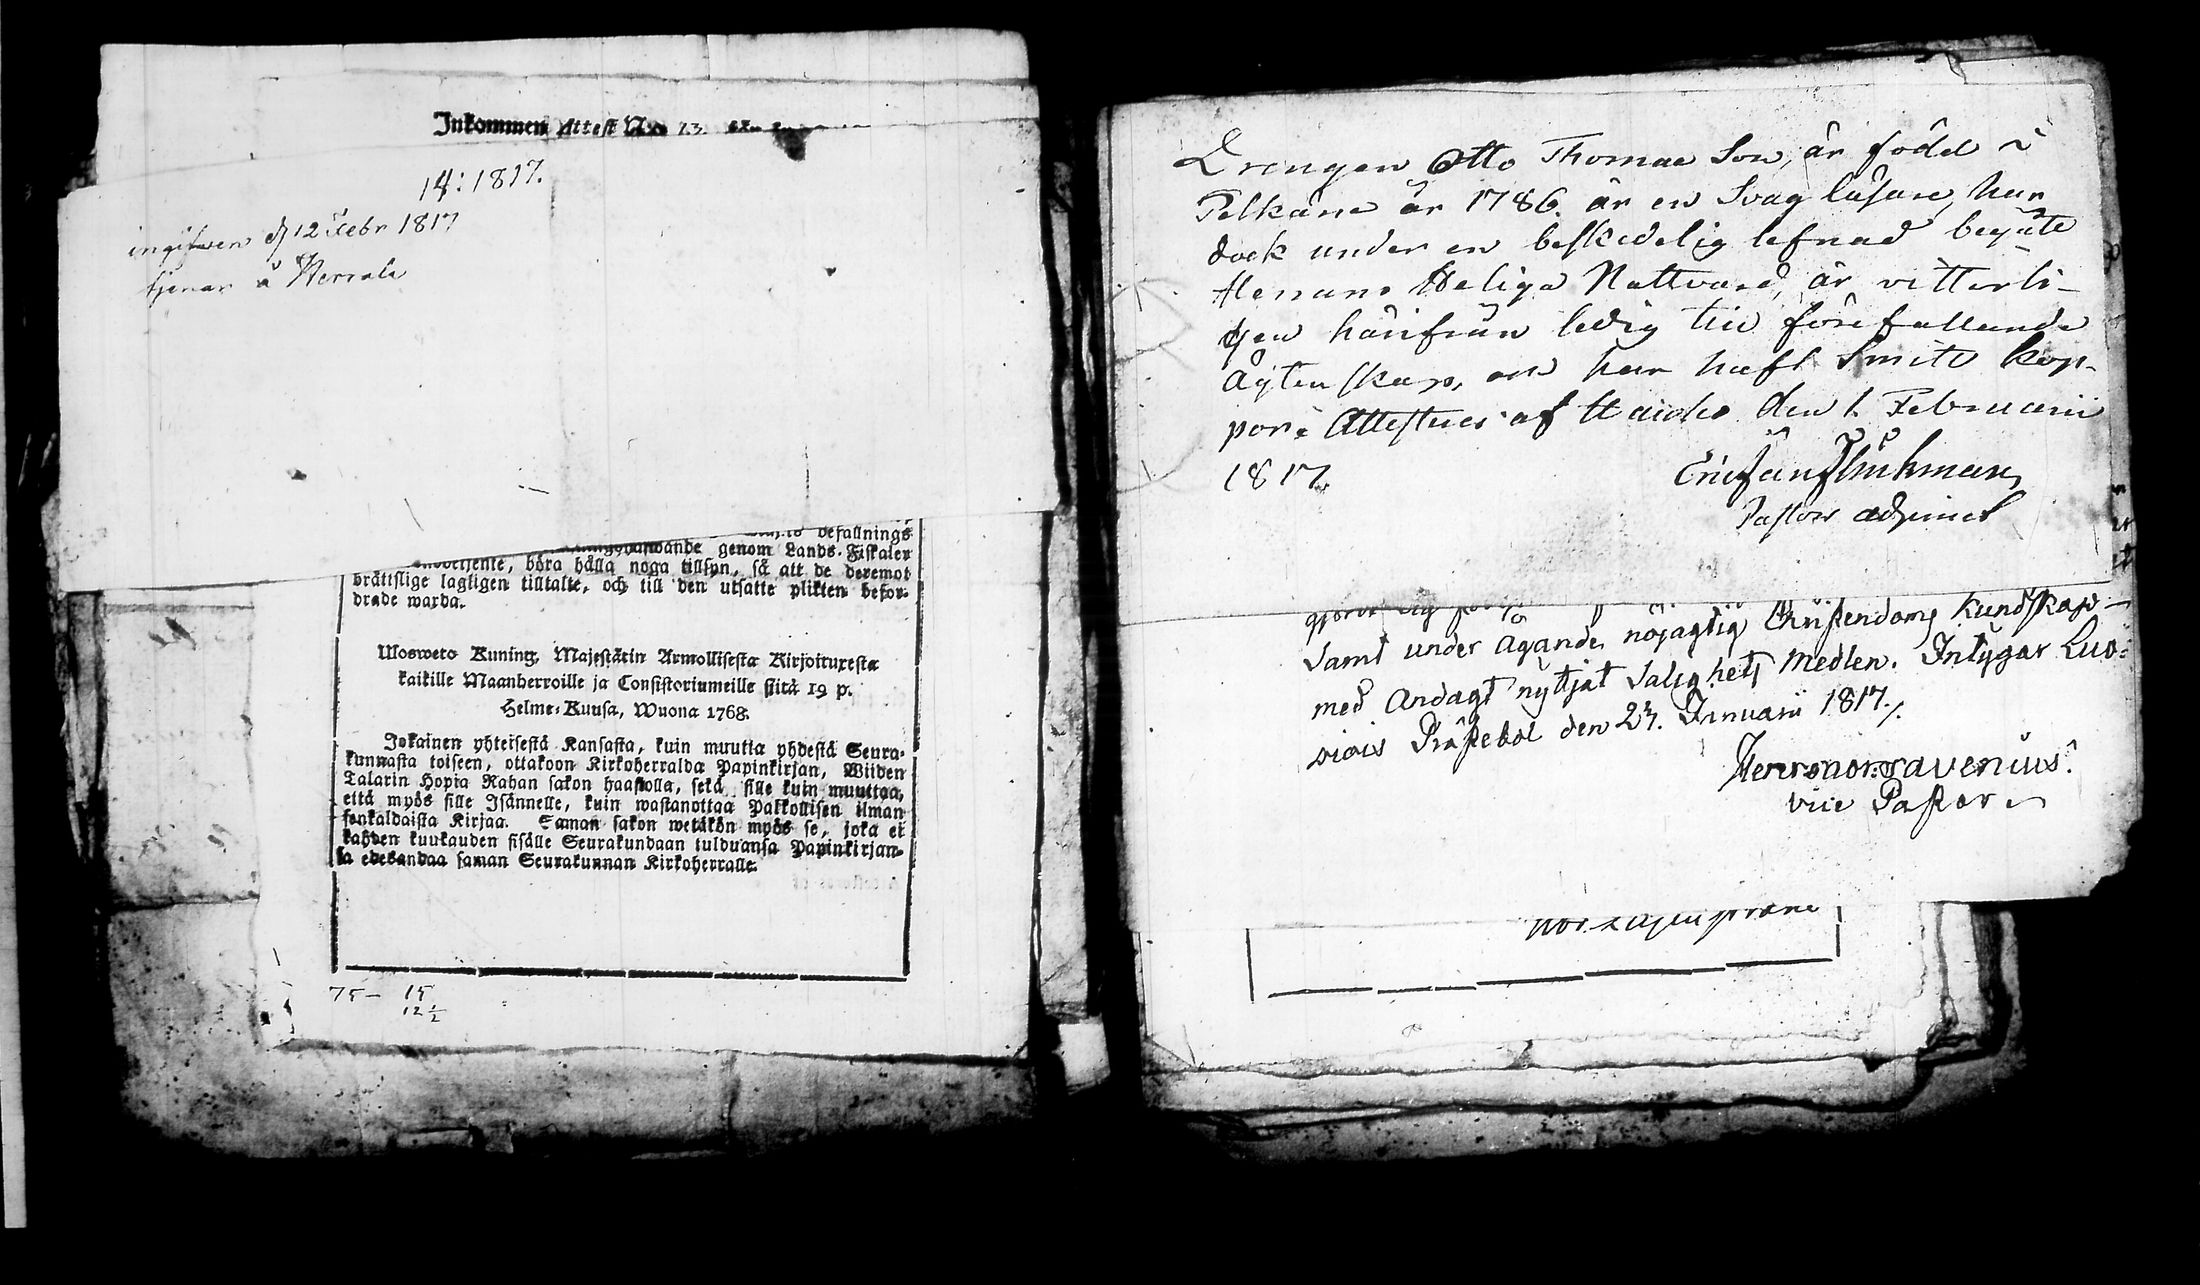 Inkommen Attest No 13.
14: 1817.
ingifwen d 12 Febr 1817
tjenar å Herrala
befallnings
genom Lands-Fiskaler
böra hålla noga tillsyn, så att de deremot
brättslige lagligen tilltalte, och till den utsatte plikten befor-
drade warda.
Wosweto Kuning. Majestätin Armollisesta Kirjoituxesta
kaikille Maanherroille ja Consistoriumeille siitä 19 p.
Helme-Kuusa, Wuona 1768.
Jokainen yhteisestä Kansasta, kuin muutta yhdestä Seura-
kunnasta toiseen, ottakoon Kirkoherralda Papinkirjan, Wiiden
Talarin Hopia Rahan sakon haastolla, sekä sille kuin muuttaa,
että myös sille Isännelle, kuin wastanottaa Palkollisen ilman
senkaldaista Kirjaa. Saman sakon wetäkön myös se, joka ei
kahden kuukauden sisälle Seurakundaan tulduansa Papinkirjan-
sa edeskandaa saman Seurakunnan Kirkoherralle.
75- 15
12 1/2
Drengen Otto Thomae Son, är född i
Pelkäne år 1786. är en Svag läsare, har
dock under en beskedelig lefnad begått
Herrans Heliga Nattvard, är vitterli-
gen härifrån ledig till förefallande
Ägtenskap, och har haft Smitt kop-
por: Attesteras af Hauho den 1. Februarii
1817.
Pastors adjunct
Samt under ägande nöjagtig Christendoms Kundskap
med Andagt nyttjat Salighets Medlen. Intygar Luo-
viois Prästebol den 27. Januarii 1817./.
vice Pastor